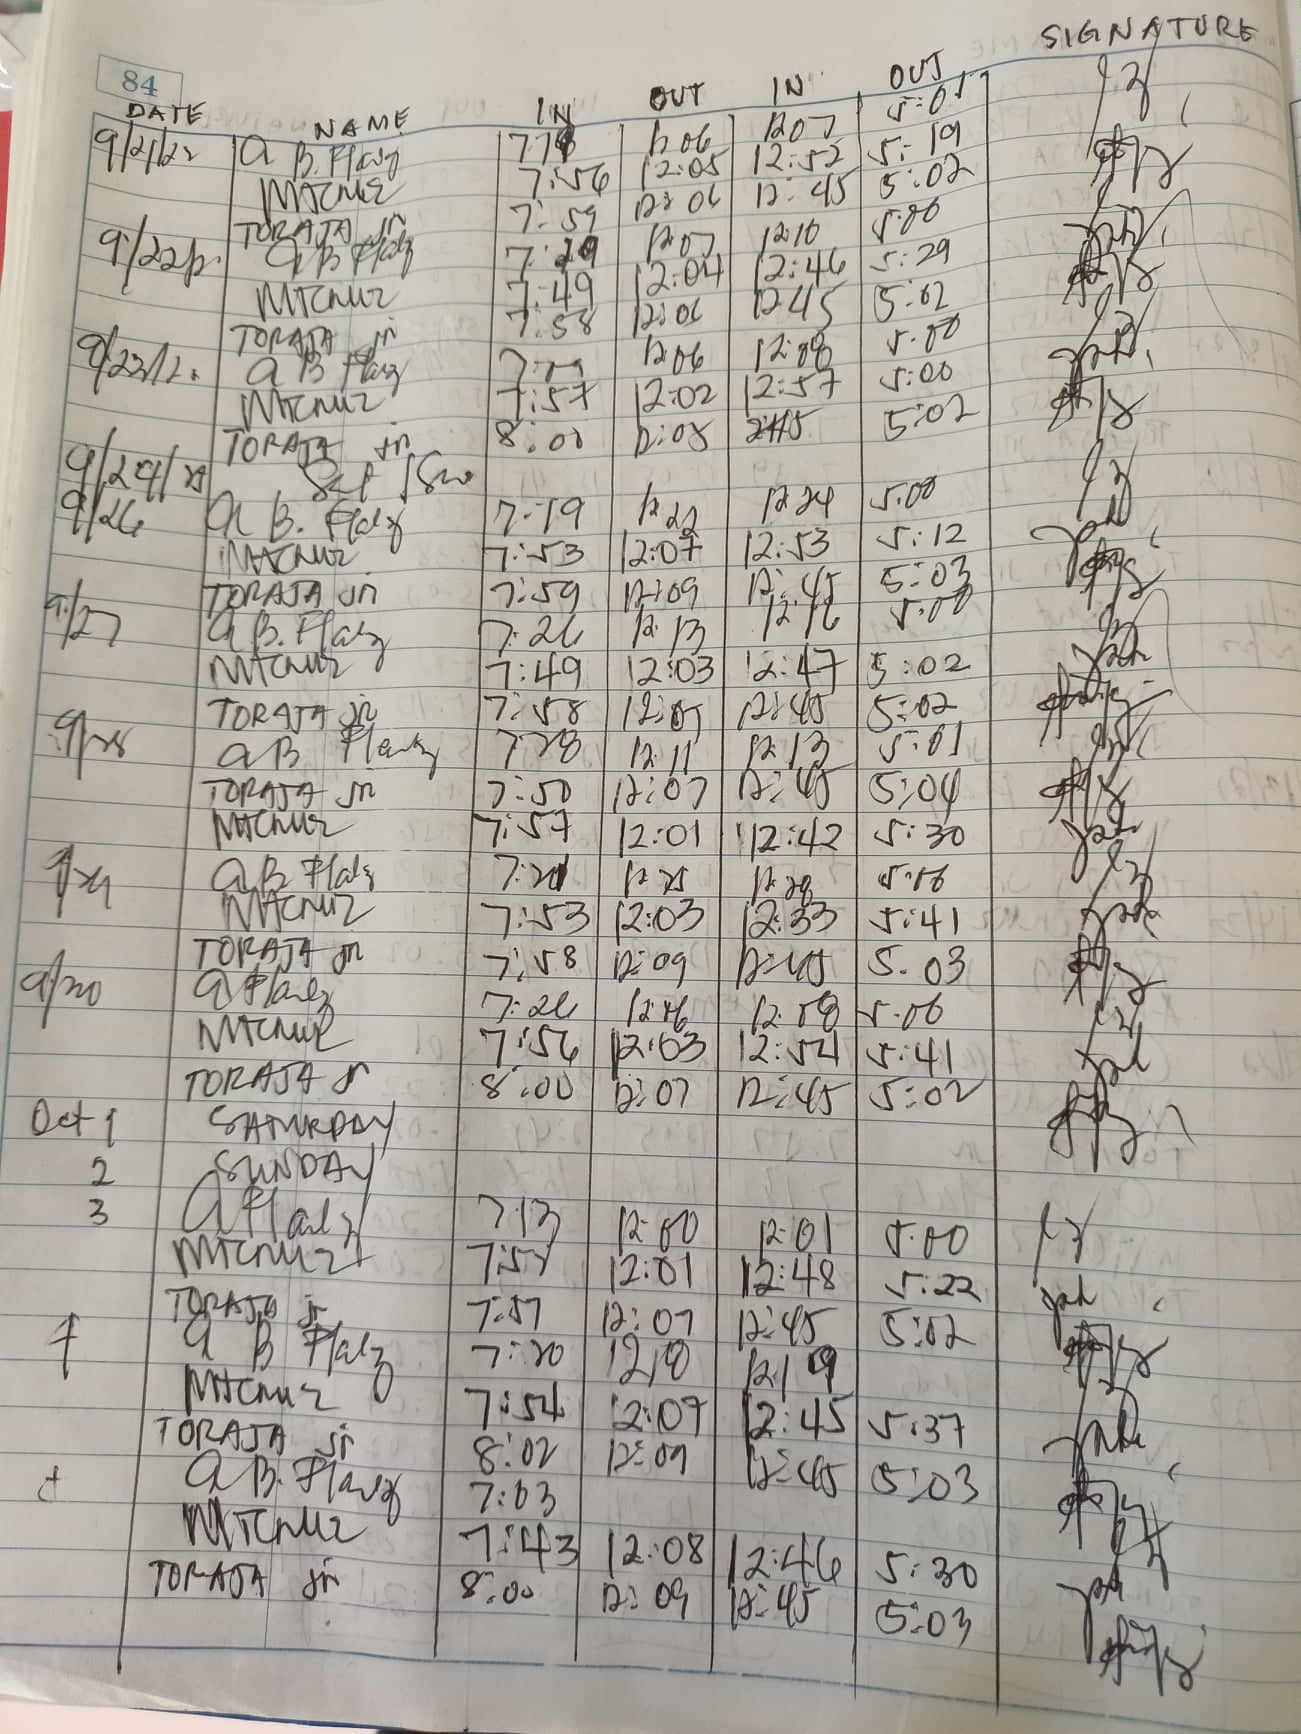 84
SIGNATURE
DATE NAME IN OUT IN OUT
9/21/22 a B. Flalz 12:06 12:07 5:01
MTCnuz 7:56 12:05 12:52 5:19
TORAJA jr 7:59 12:06 12:45 5:02
9/22/2 a B Flalz 7:29 12:07 12:10 5:00
MTCnuz 7:49 12:04 12:46 5:29
TORAJA jr 7:58 12:06 12:45 5:02
9/23/2 a B Flalz 12:06 12:08 5:00
MTCnuz 7:57 12:02 12:57 5:00
TORAJA jr 8:00 12:08 5:02
9/24/25 Sat / Sun
9/26 a B. Flalz 7:19 12:22 12:24 5:00
MTCnuz 7:53 12:07 12:53 5:12
TORAJA jr 7:59 12:09 12:45 5:03
9/27 a B. Flalz 7:26 12:13 12:16 5:00
MTCnuz 7:49 12:03 12:47 5:02
TORAJA jr 7:58 12:07 12:45 5:02
9/28 a B Flalz 7:28 12:11 12:13 5:01
TORAJA jr 7:50 12:07 12:45 5:04
MTCnuz 7:57 12:01 12:42 5:30
9/29 a B Flalz 7:21 12:25 12:28
MTCnuz 7:53 12:03 12:33 5:41
TORAJA jr 7:58 12:09 12:45 5.03
9/30 a Flalz 7:26 5:00
MTCnuz 7:56 12:03 12:54 5:41
TORAJA jr 8:00 12:07 12:45 5:02
Oct 1 SATURDAY
2 SUNDAY
3 a Flalz 7:13 12:00 12:01 5:00
MTCnuz 12:01 12:48 5:22
TORAJA jr 7:57 12:07 12:45 5:02
4 a B Flalz 7:20 12:18 12:19
MTCnuz 7:54 12:07 12:45 5:37
TORAJA jr 8:02 12:09 12:45 5:03
a B. Flalz 7:03
MTCnuz 7:43 12:08 12:46 5:30
TORAJA jr 8:00 12:09 12:45 5:03